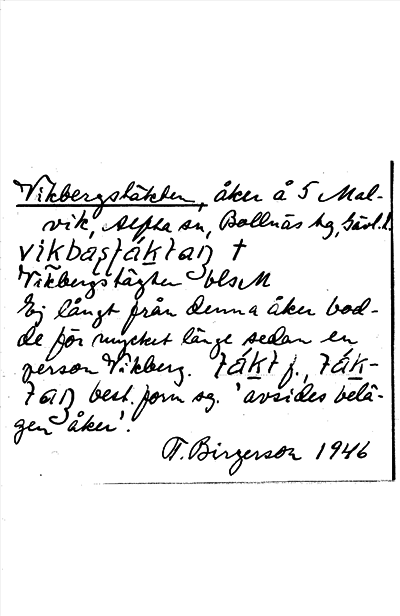 Vikbergstäkten, åker å 5 Mal-
vik, Alfta sn, Bollnäs tg, Gävl.l.
†
Vikbergstägten blsM
Ej långt från denna åker bod-
de för mycket länge sedan en
person Vikberg. f.,
best. form sg. 'avsides belä-
gen åker'.
T. Birgerson 1946